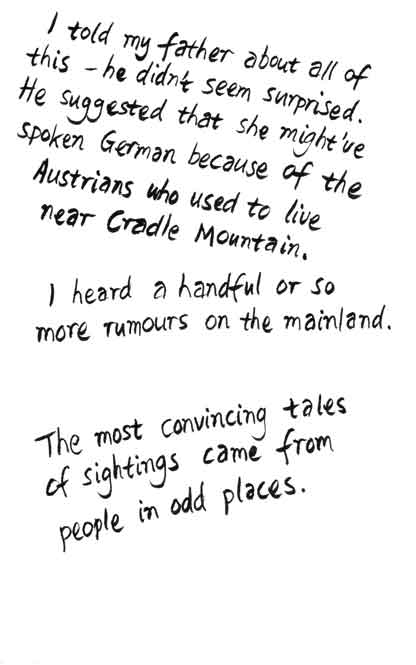 I told my father about all of
this – he didn't seem surprised.
He suggested that she might've
spoken German because of the
Austrians who used to live
near Cradle Mountain.
I heard a handful or so
more rumours on the mainland.
The most convincing tales
of sightings came from
people in odd places.